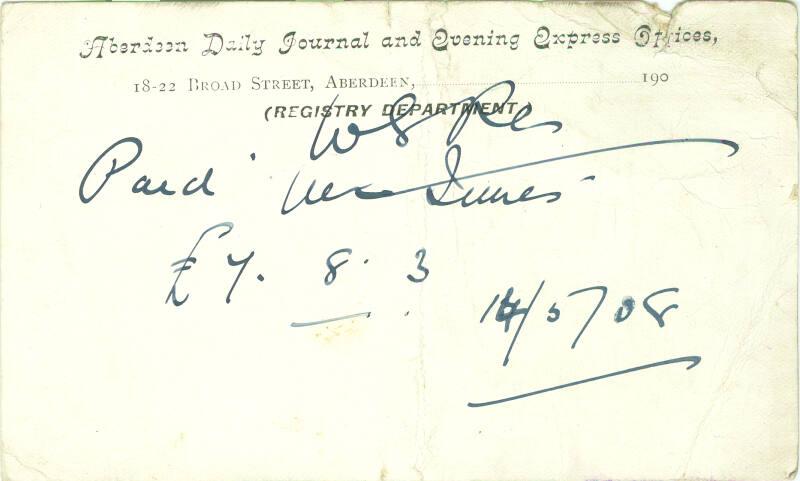 Aberdeen Daily Journal and Evening Express Offices,
18-22 BROAD STREET, ABERDEEN, 190
(REGISTRY DEPARTMENT.)
Paid Innes
£7. 8. 3
14/5/08